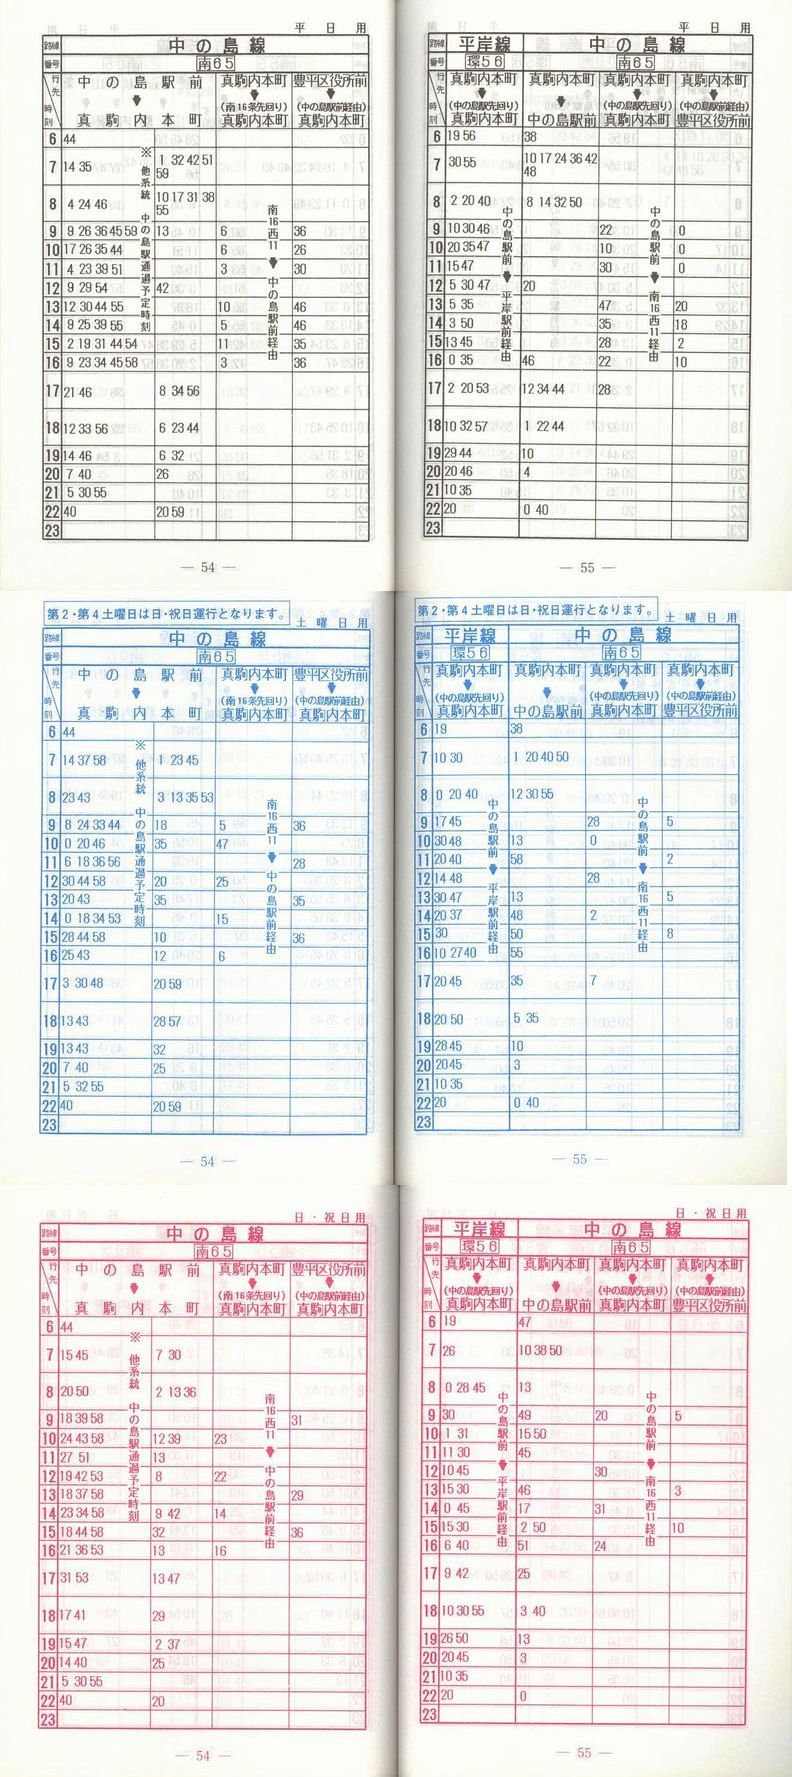 平日用
路線 中の島線
番号 南65
行先 中の島駅前 真駒内本町 豊平区役所前
(南16条先回り) (中の島駅前経由)
時刻 真駒内本町 真駒内本町 真駒内本町
※他系統 中の島駅通過予定時刻
南16西11 中の島駅前経由
6 44
7 14 35 1 32 42 51
59
8 4 24 46 10 17 31 38
55
9 9 26 36 45 59 13 6 36
10 17 26 35 44 6 26
11 4 23 39 51 3 30
12 9 29 54 42
13 12 30 44 55 10 46
14 9 25 39 55 5 46
15 2 19 31 44 54 11 35
16 9 23 34 45 58 3 36
17 21 46 8 34 56
18 12 33 56 6 23 44
19 14 46 6 32
20 7 40 26
21 5 30 55
22 40 20 59
23
— 54 —
平日用
路線 平岸線 中の島線
番号 環56 南65
行先 真駒内本町 真駒内本町 真駒内本町 真駒内本町
(中の島駅先回り) (中の島駅先回り) (中の島駅前経由)
時刻 真駒内本町 中の島駅前 真駒内本町 豊平区役所前
中の島駅前 平岸駅前経由
中の島駅前 南16西11経由
6 19 56 38
7 30 55 10 17 24 36 42
48
8 2 20 40 8 14 32 50
9 10 30 46 22 0
10 20 35 47 10 0
11 15 47 30 0
12 5 30 47 20
13 5 35 47 20
14 3 50 35 18
15 13 45 28 2
16 0 35 46 22 10
17 2 20 53 12 34 44 28
18 10 32 57 1 22 44
19 29 44 10
20 20 46 4
21 10 35
22 20 0 40
23
— 55 —
第2・第4土曜日は日・祝日運行となります。
土曜日用
路線 中の島線
番号 南65
行先 中の島駅前 真駒内本町 豊平区役所前
(南16条先回り) (中の島駅前経由)
時刻 真駒内本町 真駒内本町 真駒内本町
※他系統 中の島駅通過予定時刻
南16西11 中の島駅前経由
6 44
7 14 37 58 1 23 45
8 23 43 3 13 35 53
9 8 24 33 44 18 5 36
10 0 20 46 35 47
11 6 18 36 56 28
12 30 44 58 20 25
13 20 43 35 35
14 0 18 34 53 15
15 28 44 58 10 36
16 25 43 12 6
17 3 30 48 20 59
18 13 43 28 57
19 13 43 32
20 7 40 25
21 5 32 55
22 40 20 59
23
— 54 —
第2・第4土曜日は日・祝日運行となります。
土曜日用
路線 平岸線 中の島線
番号 環56 南65
行先 真駒内本町 真駒内本町 真駒内本町 真駒内本町
(中の島駅先回り) (中の島駅先回り) (中の島駅前経由)
時刻 真駒内本町 中の島駅前 真駒内本町 豊平区役所前
中の島駅前 平岸駅前経由
中の島駅前 南16西11経由
6 19 38
7 10 30 1 20 40 50
8 0 20 40 12 30 55
9 17 45 28 5
10 30 48 13 0
11 20 40 58 2
12 14 48 28
13 30 47 13 5
14 20 37 48 2
15 30 50 8
16 10 27 40 55
17 20 45 35 7
18 20 50 5 35
19 28 45 10
20 20 45 3
21 10 35
22 20 0 40
23
— 55 —
日・祝日用
路線 中の島線
番号 南65
行先 中の島駅前 真駒内本町 豊平区役所前
(南16条先回り) (中の島駅前経由)
時刻 真駒内本町 真駒内本町 真駒内本町
※他系統 中の島駅通過予定時刻
南16西11 中の島駅前経由
6 44
7 15 45 7 30
8 20 50 2 13 36
9 18 39 58 31
10 24 43 58 12 39 23
11 27 51 13
12 19 42 53 8 22
13 18 37 58 29
14 23 34 58 9 42 14
15 18 44 58 32 36
16 21 36 53 13 16
17 31 53 13 47
18 17 41 29
19 15 47 2 37
20 14 40 25
21 5 30 55
22 40 20
23
— 54 —
日・祝日用
路線 平岸線 中の島線
番号 環56 南65
行先 真駒内本町 真駒内本町 真駒内本町 真駒内本町
(中の島駅先回り) (中の島駅先回り) (中の島駅前経由)
時刻 真駒内本町 中の島駅前 真駒内本町 豊平区役所前
中の島駅前 平岸駅前経由
中の島駅前 南16西11経由
6 19 47
7 26 10 38 50
8 0 28 45 13
9 30 49 20 5
10 1 31 15 50
11 11 30 45
12 10 45 30
13 15 30 46 3
14 0 45 17 31
15 15 30 2 50 10
16 6 40 51 24
17 9 42 25
18 10 30 55 3 40
19 26 50 13
20 20 45 3
21 10 35
22 20 0
23
— 55 —